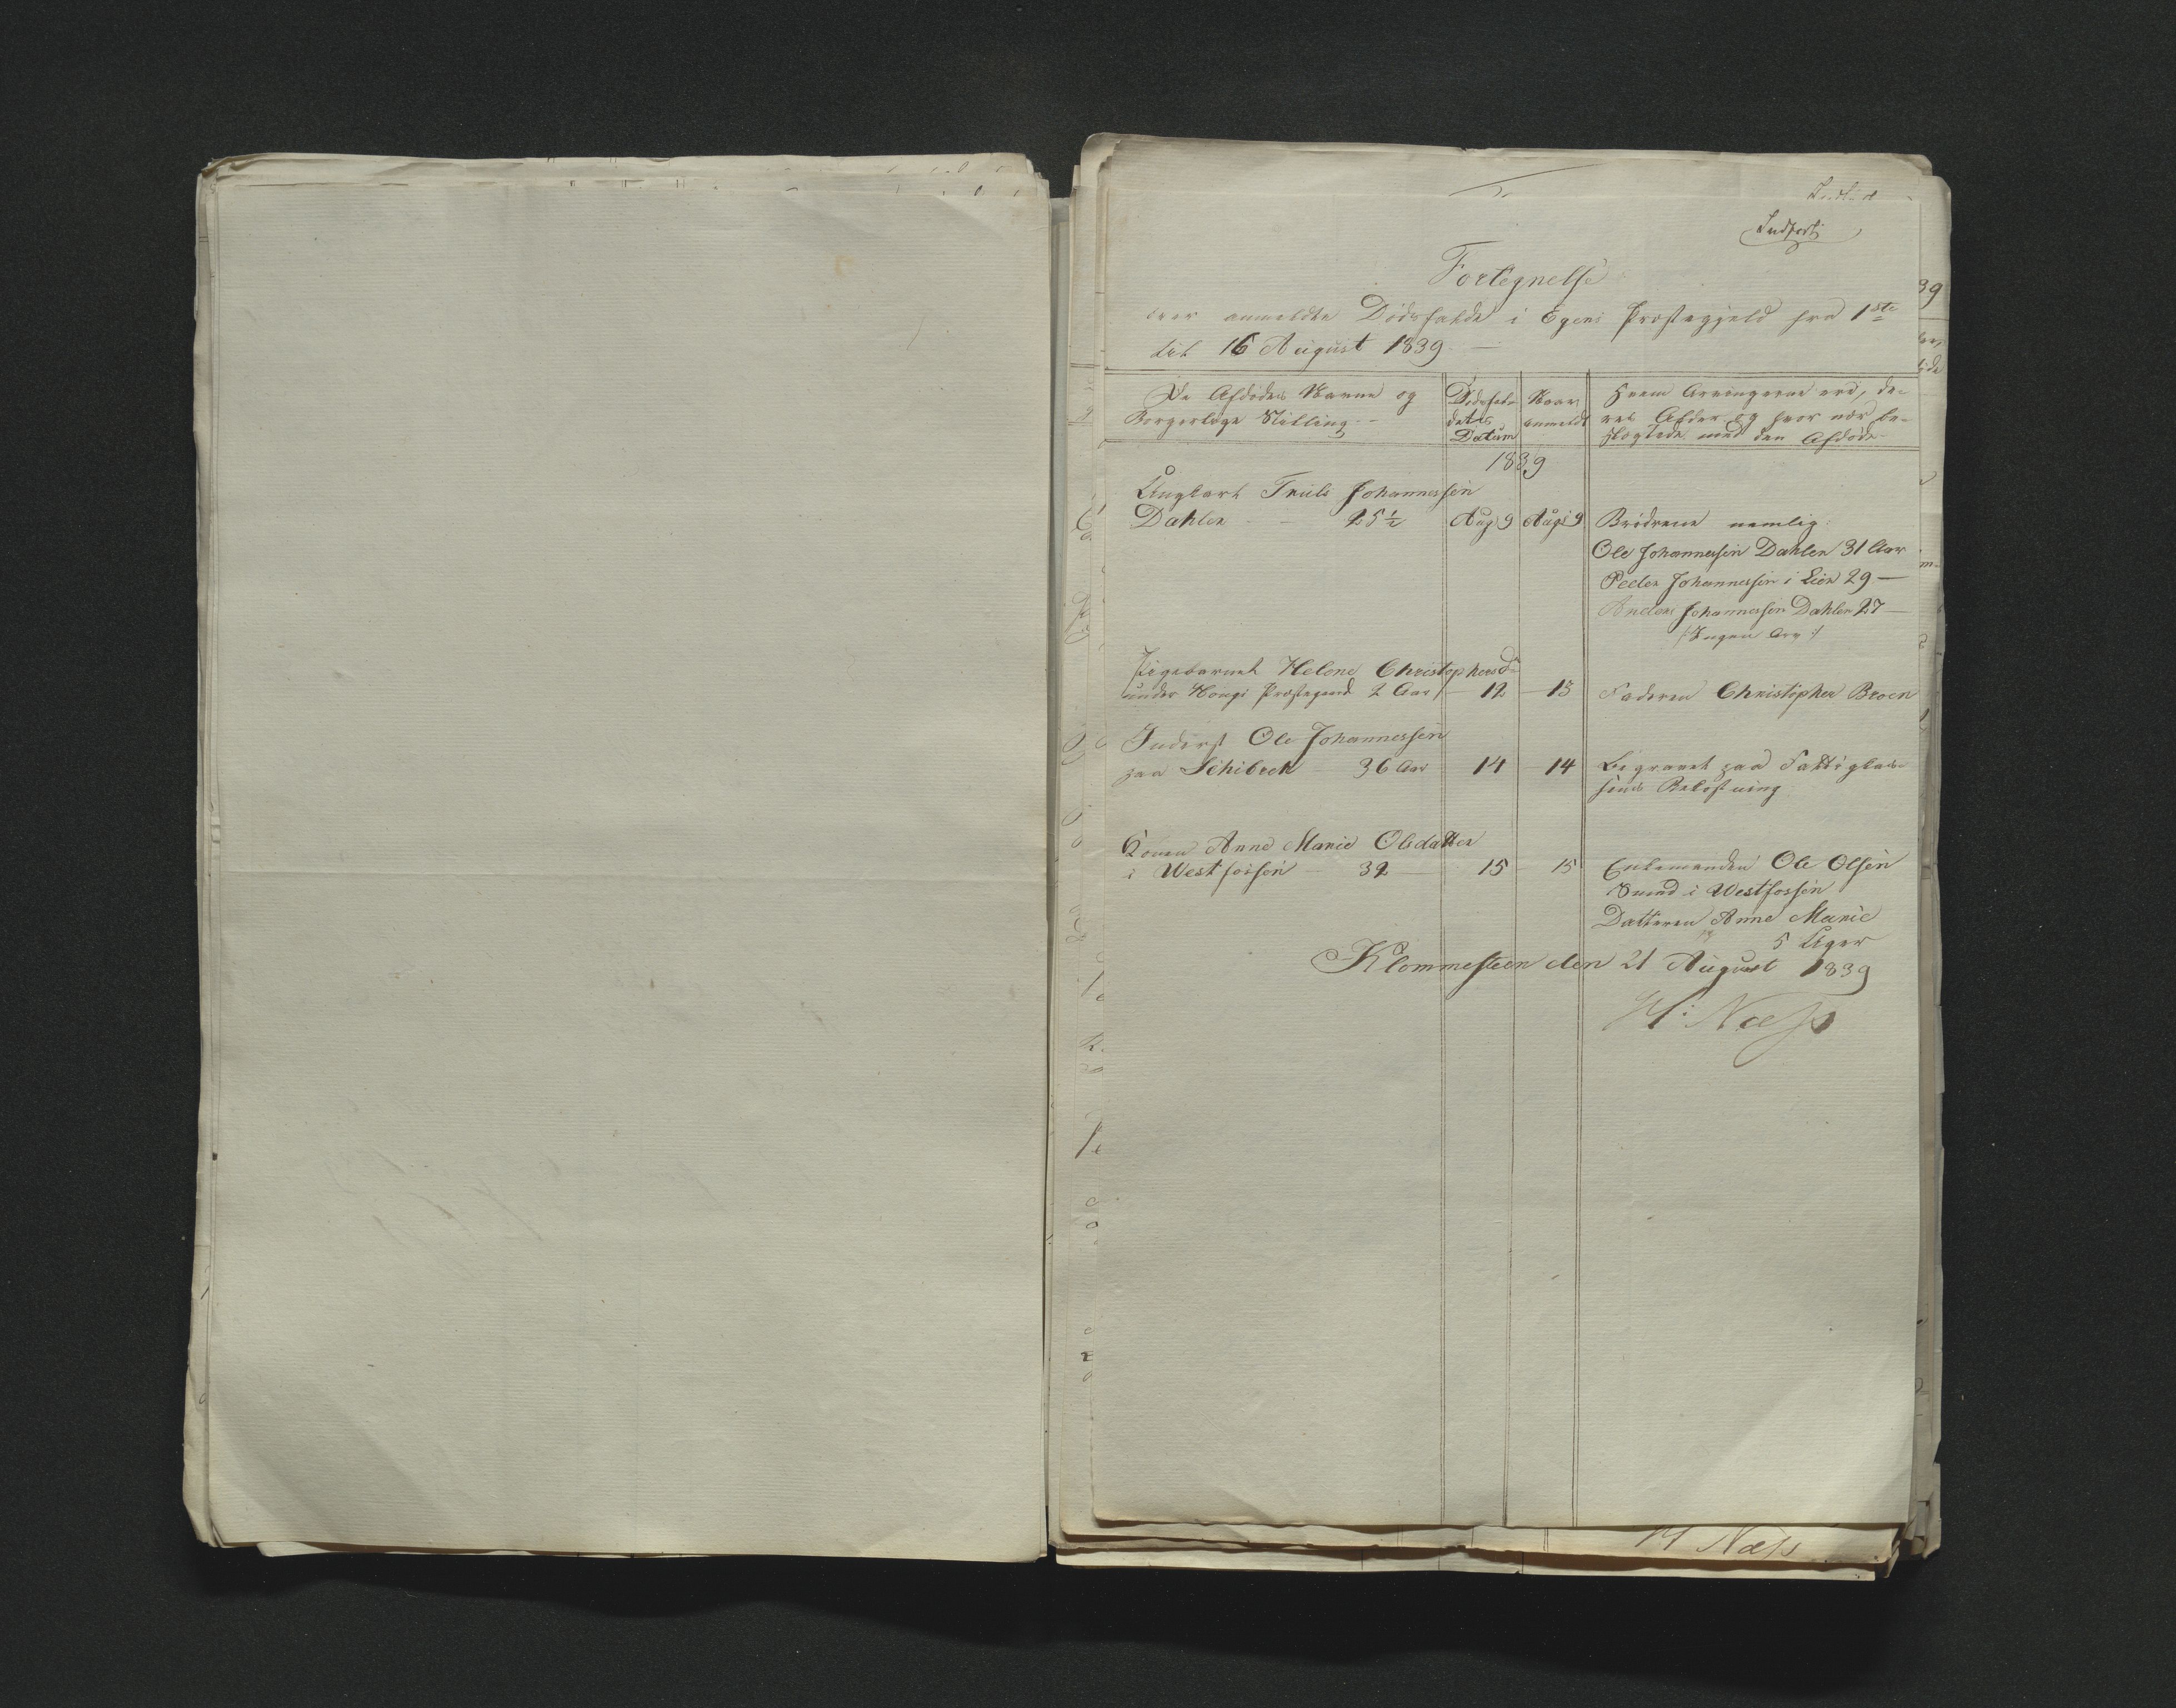 Indført
Fortegnelse
over anmeldte Dødsfalde i Egers Præstegjeld fra 1ste
til 16 August 1839
De Afdødes Navne og
borgerlige Stilling
Dødsfal-
detes
Datum
Naar
anmeldt
Hvem Arvingerne ere, de-
res Alder og hvor nær be-
slægtede med den Afdøde
1839
Ungkarl Truls Johannessen
Dahlen 25½
Aug 9
Aug 9
Brødrene nemlig:
Ole Johannessen Dahlen 31 Aar
Peder Johannessen i Lier 29 —
Anders Johannessen Dahlen 27 —
/: Ingen Arv :/
Pigebarnet Helene Christophersd
under Hougs Præstegaard 2 Aar
— 12
— 13
Faderen Christopher Broen
Inderst Ole Johannessen
paa Schibrek 36 Aar
14
— 14
Begravet paa Fattigkas-
sens Bekostning
Konen Anne Marie Olsdatter
i Westfossen — 32 —
15
15
Enkemanden Ole Olsen
Smed i Westfossen
Datteren Anne Marie
5 Uger
Klommesteen den 21 August 1839
H: Næss
H Næss